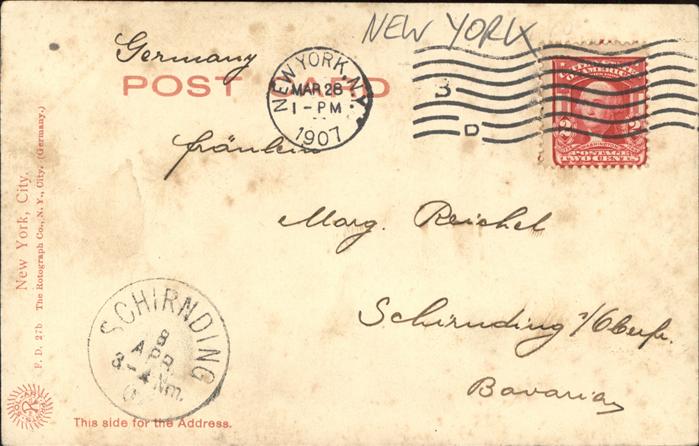 NEW YORK
Germany
POST CARD
NEW YORK, N.Y.
MAR 28
1-PM
1907
B
D
TWO CENTS
Fräulein
Marg. Reichel
Schirnding
Bavaria
SCHIRNDING
8
APR.
3-4 Nm.
07
This side for the Address.
New York, City.
F. D. 27b The Rotograph Co., N. Y., City. (Germany.)